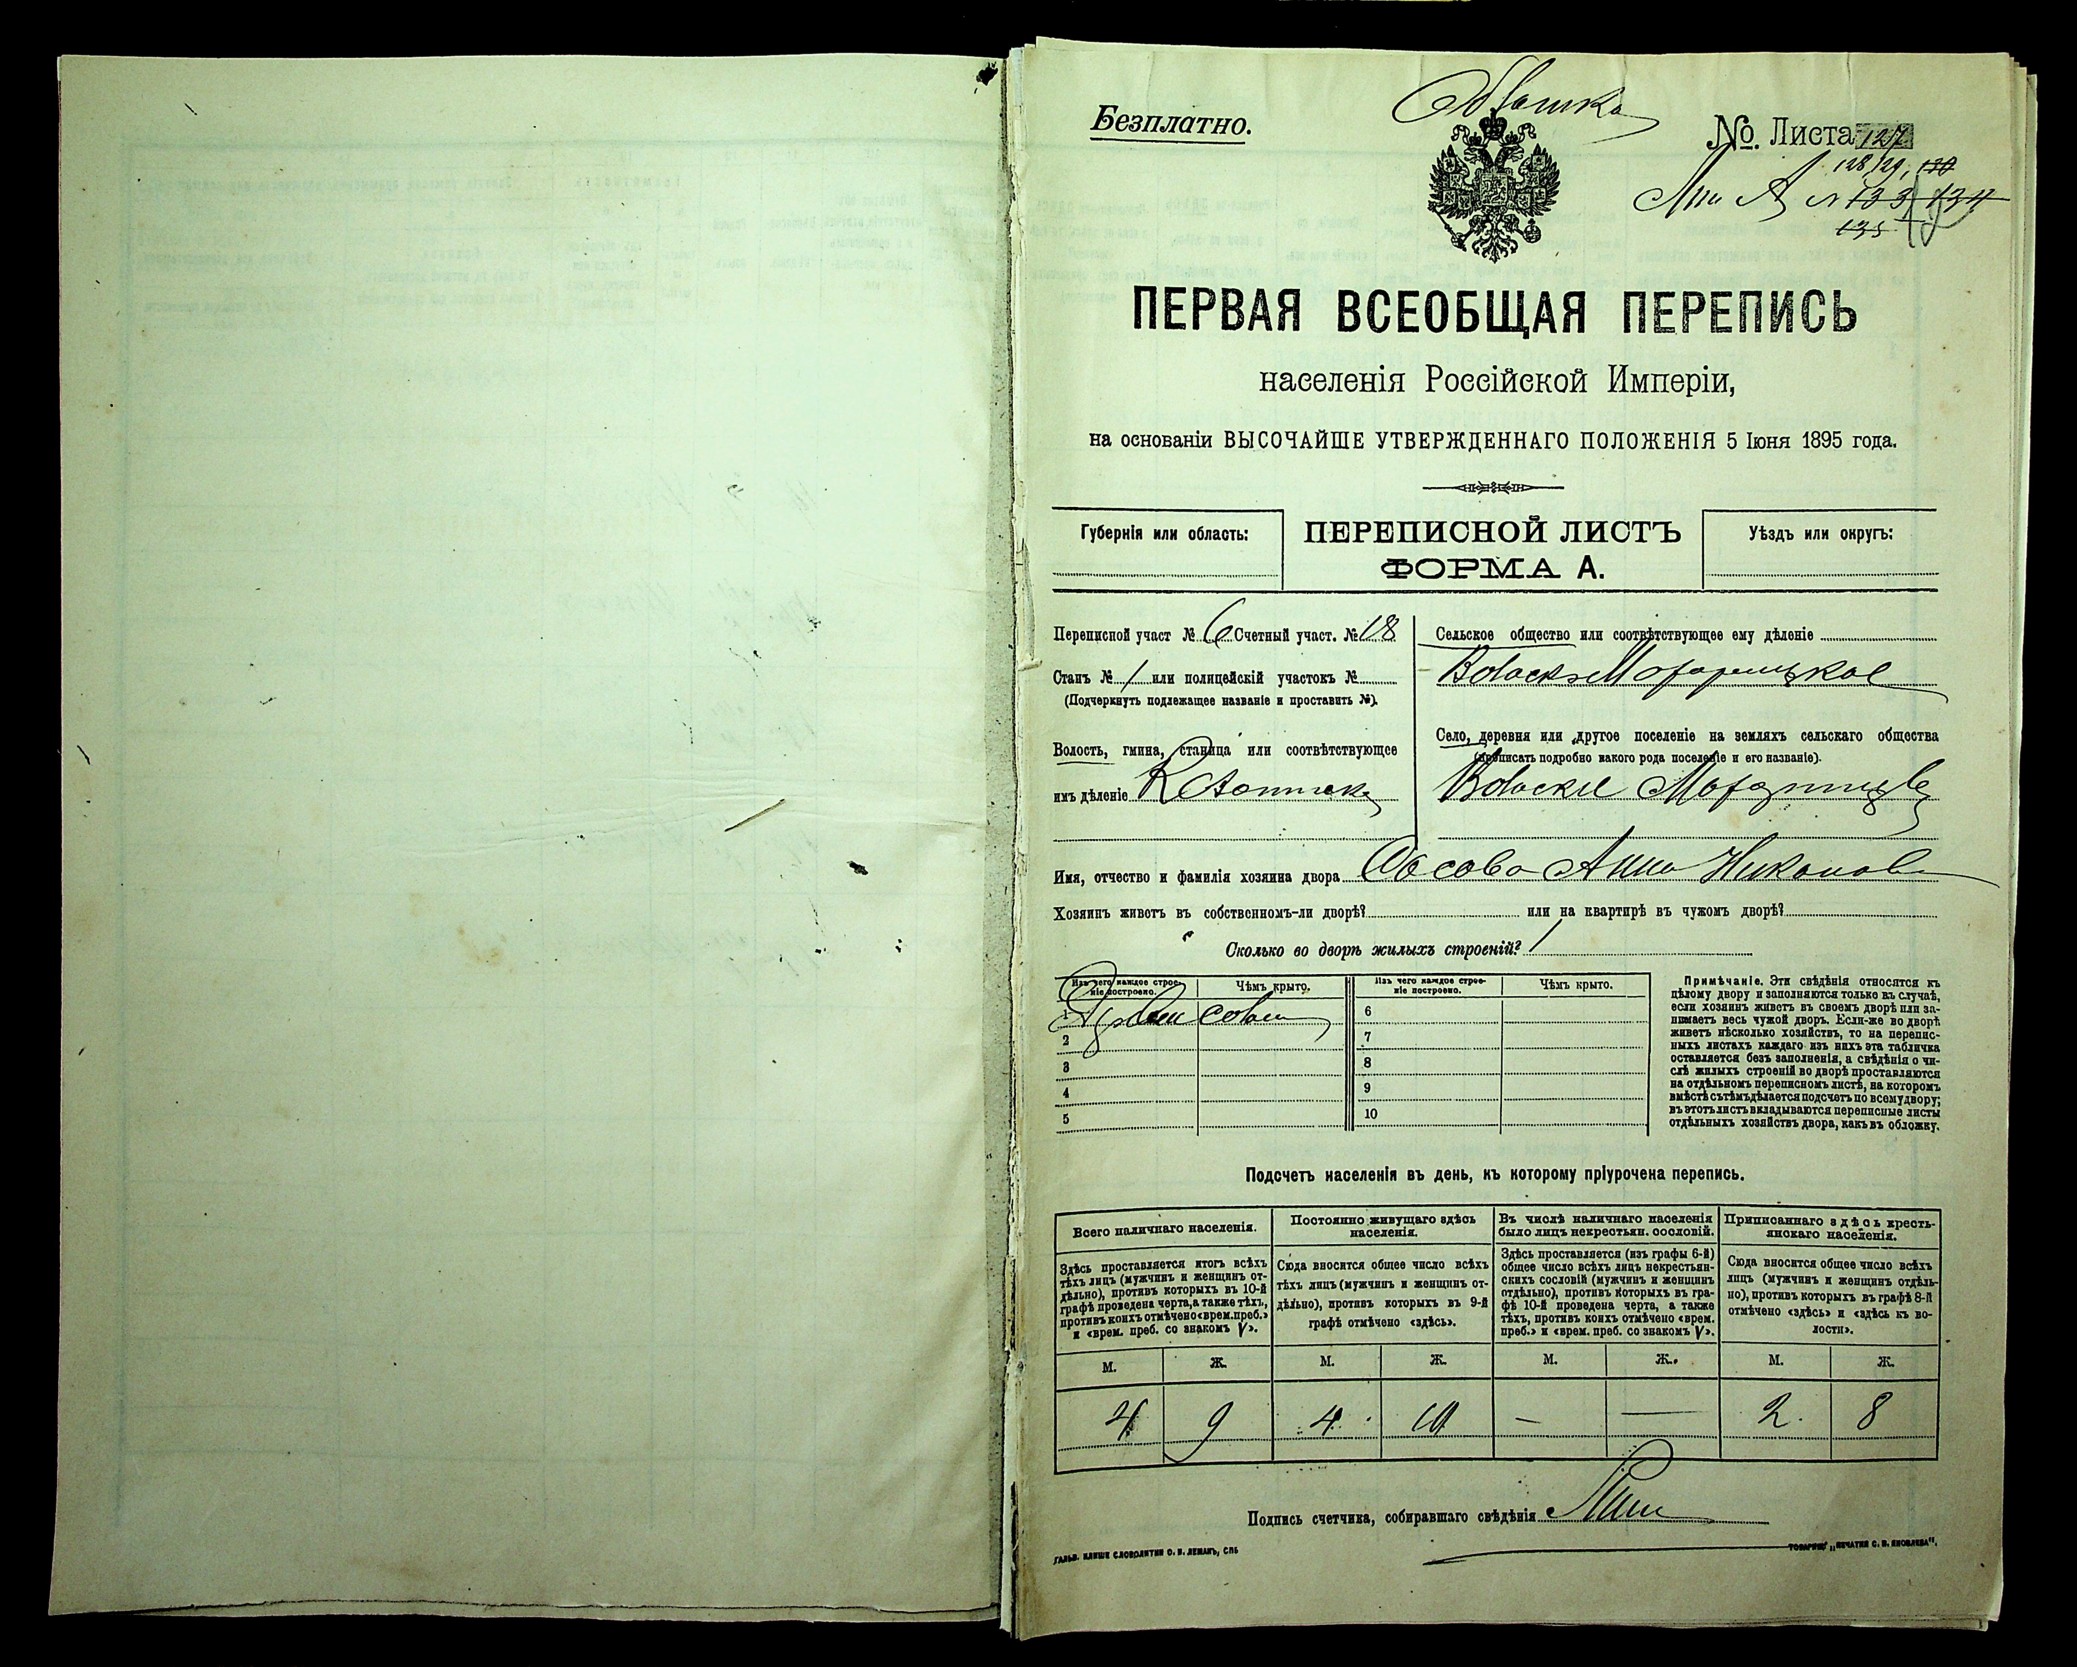 Обложка
Безплатно.
№ Листа 127
128, 129, 130
133 134
135
ПЕРВАЯ ВСЕОБЩАЯ ПЕРЕПИСЬ
населенія Россійской Имперіи,
на основаніи ВЫСОЧАЙШЕ УТВЕРЖДЕННАГО ПОЛОЖЕНІЯ 5 Іюня 1895 года.
Губернія или область:
ПЕРЕПИСНОЙ ЛИСТЪ
ФОРМА А.
Уѣздъ или округъ:
Переписной участ № 6 Счетный участ. № 18
Станъ № 1 или полицейскій участокъ №
(Подчеркнуть подлежащее названіе и проставить №).
Волость, гмина, станица или соотвѣтствующее
имъ дѣленіе
Сельское общество или соотвѣтствующее ему дѣленіе
Село, деревня или другое поселеніе на земляхъ сельскаго общества
(прописать подробно какого рода поселеніе и его названіе).
Имя, отчество и фамилія хозяина двора Анна
Хозяинъ живетъ въ собственномъ-ли дворѣ? или на квартирѣ въ чужомъ дворѣ?
Сколько во дворѣ жилыхъ строеній? 1
Изъ чего каждое строе-
ніе построено.
Чѣмъ крыто.
Изъ чего каждое строе-
ніе построено.
Чѣмъ крыто.
1
2
3
4
5
6
7
8
9
10
Примѣчаніе. Эти свѣдѣнія относятся къ
цѣлому двору и заполняются только въ случаѣ,
если хозяинъ живетъ въ своемъ дворѣ или за-
нимаетъ весь чужой дворъ. Если-же во дворѣ
живетъ нѣсколько хозяйствъ, то на перепис-
ныхъ листахъ каждаго изъ нихъ эта табличка
оставляется безъ заполненія, а свѣдѣнія о чи-
слѣ жилыхъ строеній во дворѣ проставляются
на отдѣльномъ переписномъ листѣ, на которомъ
вмѣстѣ съ тѣмъ дѣлается подсчетъ по всему двору;
въ этотъ листъ вкладываются переписные листы
отдѣльныхъ хозяйствъ двора, какъ въ обложку.
Подсчетъ населенія въ день, къ которому пріурочена перепись.
Всего наличнаго населенія.
Здѣсь проставляется итогъ всѣхъ
тѣхъ лицъ (мужчинъ и женщинъ от-
дѣльно), противъ которыхъ въ 10-й
графѣ проведена черта, а также тѣхъ,
противъ коихъ отмѣчено «врем. преб.»
и «врем. преб. со знакомъ V».
Постоянно живущаго здѣсь
населенія.
Сюда вносится общее число всѣхъ
тѣхъ лицъ (мужчинъ и женщинъ от-
дѣльно), противъ которыхъ въ 9-й
графѣ отмѣчено «здѣсь».
Въ числѣ наличнаго населенія
было лицъ некрестьян. сословій.
Здѣсь проставляется (изъ графы 6-й)
общее число всѣхъ лицъ некрестьян-
скихъ сословій (мужчинъ и женщинъ
отдѣльно), противъ которыхъ въ гра-
фѣ 10-й проведена черта, а также
тѣхъ, противъ коихъ отмѣчено «врем.
преб.» и «врем. преб. со знакомъ V».
Приписаннаго здѣсь кресть-
янскаго населенія.
Сюда вносится общее число всѣхъ
лицъ (мужчинъ и женщинъ отдѣль-
но), противъ которыхъ въ графѣ 8-й
отмѣчено «здѣсь» и «здѣсь къ во-
лости».
М. Ж. М. Ж. М. Ж. М. Ж.
4 9 4 10 — — 2 8
Подпись счетчика, собиравшаго свѣдѣнія
ГАЛЬВ. КЛИШЕ СЛОВОЛИТНИ О. И. ЛЕМАНЪ, СПБ
ТОВАРИЩ. „ПЕЧАТНЯ С. П. ЯКОВЛЕВА".